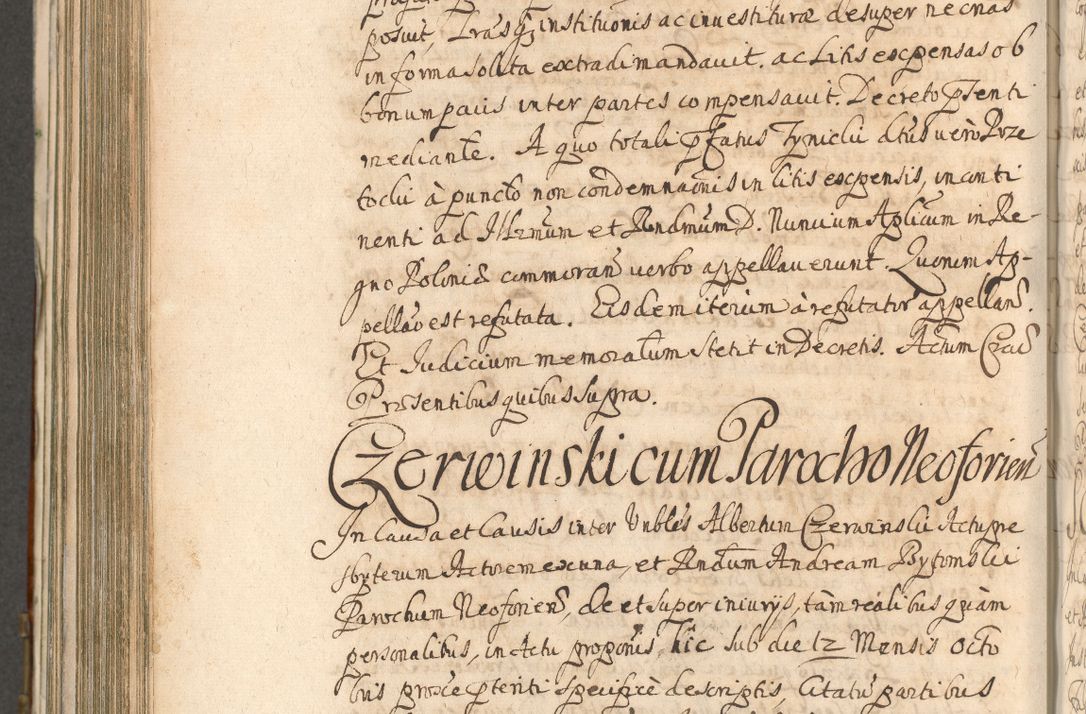 posuit, Lrasq3 institutionis ac inuestituræ desuper necnas
in forma solita extradi mandauit. ac Litis expensas ob
bonum pacis inter partes compensauit. Decreto pñti
mediante. A quo totali pfatus Zynicki dtus vero Roze
tocki à puncto non condemnãonis in litis expensis, in conti
nenti ad Illrmum et Rndmum D. Nuncium Aplicum in Re-
gno Poloniæ commoran uerbo appellauerunt. Quorum Ap-
pellão est refutata. Eisdem iterum à refutator appellan.
Et Judicium memoratum stetit in Decretis. Actum Crac
Præsentibus quibus supra.
Czerwinski cum Parocho Neoforien
In Causa et Causis inter Vnbles Albertum Czerwinski Actu pre
sbyterum Actorem ex una, et Rndum Andream Bytomski
Parochum Neoforien, de et super iniurijs, tam realibus quàm
personalibus, in Actu propoñis, hic sub die 12 Mensis Octo
bris præsentis specificè descriptis, Citatu partibus